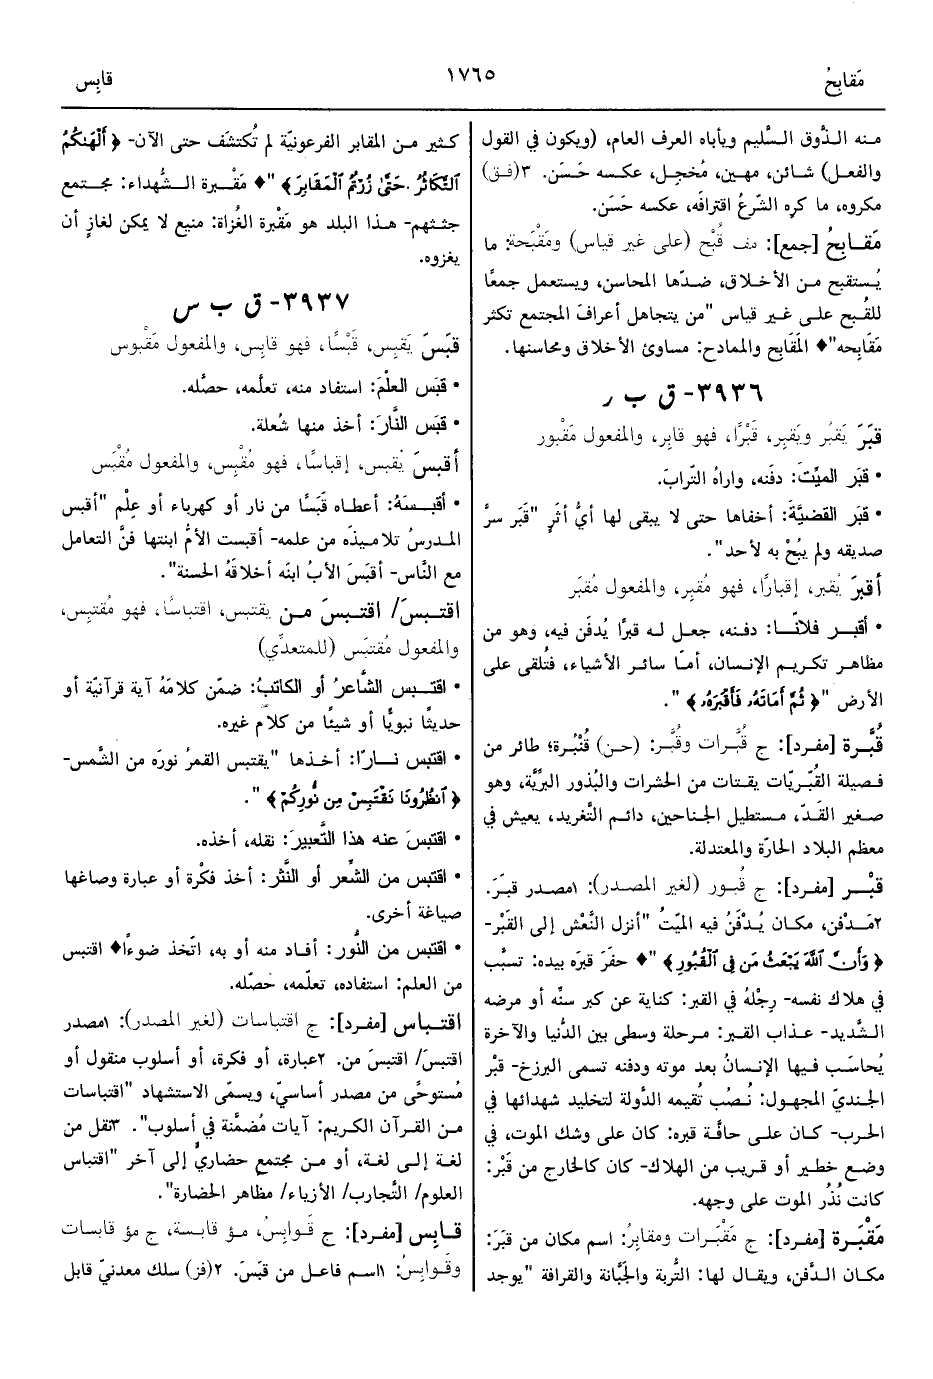 مَقابِحُ
١٧٦٥
قابِس
منه الذَّوق السَّليم ويأباه العرف العام، (ويكون في القول
والفعل) شائن، مهين، مُخجِل، عكسه حَسَن. ٣(فق)
مكروه، ما كره الشّرعُ اقترافَه، عكسه حَسَن.
مَقـابِحُ [جمع]: مف قُبْح (على غير قياس) ومَقْبَحة: ما
يُستقبح من الأخلاق، ضدّها المحاسن، ويستعمل جمعًا
للقُبح على غير قياس "من يتجاهل أعرافَ المجتمع تكثر
مَقابحه"♦ المَقَابح والممادح: مساوئ الأخلاق ومحاسنها.
٣٩٣٦- ق ب ر
قبَرَ يَقبُر ويَقبِر، قَبْرًا، فهو قابِر، والمفعول مَقْبور
• قبَر الميِّتَ: دفَنه، واراهُ التّرابَ.
• قبَر القضيَّةَ: أخفاها حتى لا يبقى لها أيُّ أثرٍ "قَبَر سرَّ
صديقه ولم يبُحْ به لأحد".
أقبرَ يُقبر، إقبارًا، فهو مُقبِر، والمفعول مُقبَر
• أقبر فلانًا: دفنه، جعل له قبرًا يُدفَن فيه، وهو من
مظاهر تكريم الإنسان، أمّا سائر الأشياء، فتُلقى على
الأرض "﴿ ثُمَّ أَمَاتَهُۥ فَأَقْبَرَهُۥ ﴾ ".
قُبَّرة [مفرد]: ج قُبَّرات وقُبَّر: (حن) قُنْبُرة؛ طائر من
فصيلة القُبَّريّات يقتات من الحشرات والبُذور البرِّيَّة، وهو
صغير القَدّ، مستطيل الجناحين، دائم التَّغريد، يعيش في
معظم البلاد الحارّة والمعتدلة.
قبْـر [مفرد]: ج قُبـور (لغير المصدر): ١مصدر قبَرَ.
٢مَـدْفن، مكان يُـدْفَنُ فيه الميّتُ "أنزل النَّعْش إلى القَبْر-
﴿ وَأَنَّ ٱللَّهَ يَبْعَثُ مَن فِى ٱلْقُبُورِ ﴾ "♦ حفَر قبرَه بيده: تسبَّب
في هلاك نفسه- رِجلُهُ في القبر: كناية عن كبر سنِّه أو مرضه
الشَّديد- عذاب القبر: مرحلة وسطى بين الدُّنيا والآخرة
يُحاسَب فيها الإنسانُ بعد موته ودفنه تسمى البرزخ- قَبْر
الجنديّ المجهول: نُصُب تقيمه الدَّولة لتخليد شهدائها في
الحرب- كان على حافَّة قبره: كان على وشك الموت، في
وضع خطير أو قريب من الهلاك- كان كالخارج من قَبْر:
كانت نُذُر الموت على وجهه.
مَقْبَـرة [مفرد]: ج مَقْبَـرات ومقابرُ: اسم مكان من قبَرَ:
مكان الـدَّفن، ويقال لها: التُّربة والجبَّانة والقرافة "يوجد
كثير من المقابر الفرعونيّة لم تُكتشَف حتى الآن- ﴿ أَلْهَىٰكُمُ
ٱلتَّكَاثُرُ . حَتَّىٰ زُرْتُمُ ٱلْمَقَابِرَ ﴾ "♦ مَقْبرة الشُّهداء: مجـتمع
جثثهم- هـذا البلد هو مَقْبرة الغُزاة: منيع لا يمكن لغازٍ أن
يغزوه.
٣٩٣٧- ق ب س
قبَسَ يَقبِس، قَبْسًا، فهو قابِس، والمفعول مَقْبوس
• قبَس العلْمَ: استفاد منه، تعلَّمه، حصَّله.
• قبَس النَّارَ: أخذ منها شُعلة.
أقبسَ يُقبس، إقباسًا، فهو مُقْبِس، والمفعول مُقْبَس
• أقبـسَهُ: أعطاه قَبَسًا من نار أو كهرباء أو عِلْم "أقبس
المدرسُ تلاميذَه من علمه- أقبست الأمُّ ابنتها فنَّ التعامل
مع النَّاس- أقبَسَ الأبُ ابنَه أخلاقَهُ الحسنة".
اقتبسَ/ اقتبسَ مـن يقتبس، اقتباسًا، فهو مُقتبِس،
والمفعول مُقتبَس (للمتعدِّي)
• اقتبـس الشَّاعرُ أو الكاتبُ: ضمّن كلامَهُ آية قرآنيّة أو
حديثًا نبويًّا أو شيئًا من كلام غيره.
• اقتبس نـارًا: أخذها "يقتبس القمرُ نورَه من الشَّمس-
﴿ ٱنظُرُونَا نَقْتَبِسْ مِن نُّورِكُمْ ﴾ ".
• اقتبسَ عنه هذا التَّعبيرَ: نقله، أخذه.
• اقتبس من الشِّعر أو النَّثر: أخذ فكْرة أو عبارة وصاغها
صياغة أخرى.
• اقتبس من النُّور: أفـاد منه أو به، اتّخذ ضوءًا♦ اقتبس
من العلم: استفاده، تعلّمه، حصّله.
اقتـباس [مفـرد]: ج اقتباسات (لغير المصدر): ١مصدر
اقتبسَ/ اقتبسَ من. ٢عبارة، أو فكرة، أو أسلوب منقول أو
مُستوحًى من مصدر أساسيّ، ويسمّى الاستشهاد "اقتباسات
من القرآن الكريم: آيات مُضمَّنة في أسلوب". ٣نقل من
لغة إلى لغة، أو من مجتمع حضاريّ إلى آخر "اقتباس
العلوم/ التَّجارب/ الأزياء/ مظاهر الحضارة".
قـابس [مفرد]: ج قَـوابِسُ، مـؤ قابسة، ج مؤ قابسات
وقَـوابِسُ: ١اسم فاعل من قبَسَ. ٢(فز) سلك معدنيّ قابل